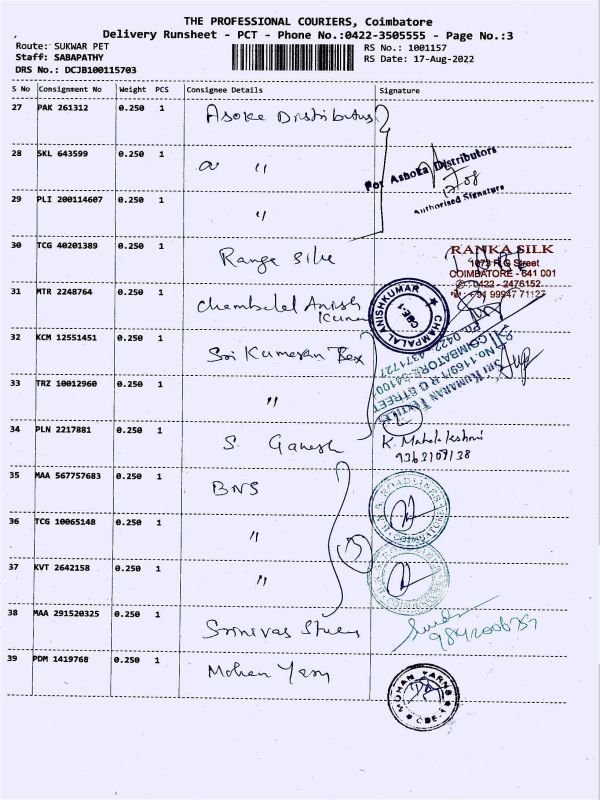 THE PROFESSIONAL COURIERS, Coimbatore
Delivery Runsheet - PCT - Phone No.:0422-3505555 - Page No.:3
Route: SUKWAR PET
RS No.: 1001157
Staff: SABAPATHY
RS Date: 17-Aug-2022
DRS No.: DCJB100115703
S No Consignment No Weight PCS Consignee Details Signature
27 PAK 261312 0.250 1 Asoke Distributus
28 SKL 643599 0.250 1 "
For Ashoka Distributors
Authorised Signature
29 PLI 200114607 0.250 1 "
30 TCG 40201389 0.250 1 Ranga Silk
RANKA SILK
1073 R G Street
COIMBATORE - 641 001
0422 - 2476152
+91 99947 71127
31 MTR 2248764 0.250 1 Chambalal Anish Kumar
CHAMPALAL ANISHKUMAR
CBE-1
32 KCM 12551451 0.250 1 Sri Kumaran Tex
SRI KUMARAN TEXTILE
No-1169/1 R G STREET
COIMBATORE-641001
Ph: 0422-4371727
33 TRZ 10012960 0.250 1 "
34 PLN 2217881 0.250 1 S. Ganesh
K. Mahalakshmi
9363109138
35 MAA 567757683 0.250 1 BNS
ROADLINES
36 TCG 10065148 0.250 1 "
37 KVT 2642158 0.250 1 "
38 MAA 291520325 0.250 1 Srinivas
39 PDM 1419768 0.250 1 Mohan Yarn
MOHAN YARNS
CBE-1